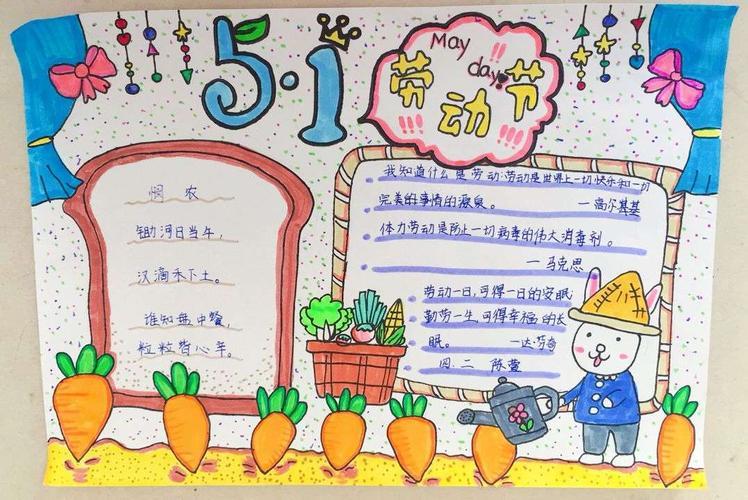 5.1
May
day
劳动节
悯 农
锄河日当午,
汉滴禾下土。
谁知盘中餐,
粒粒皆心辛。
我知道什么是劳动:劳动是世界上一切快乐和一切
完美的事情的源泉。 —高尔基基
体力劳动是防止一切病毒的伟大消毒剂。
—马克思
劳动一日,可得一日的安眠
勤劳一生,可得幸福的长
眠。 —达芬奇
四.二 陈萱